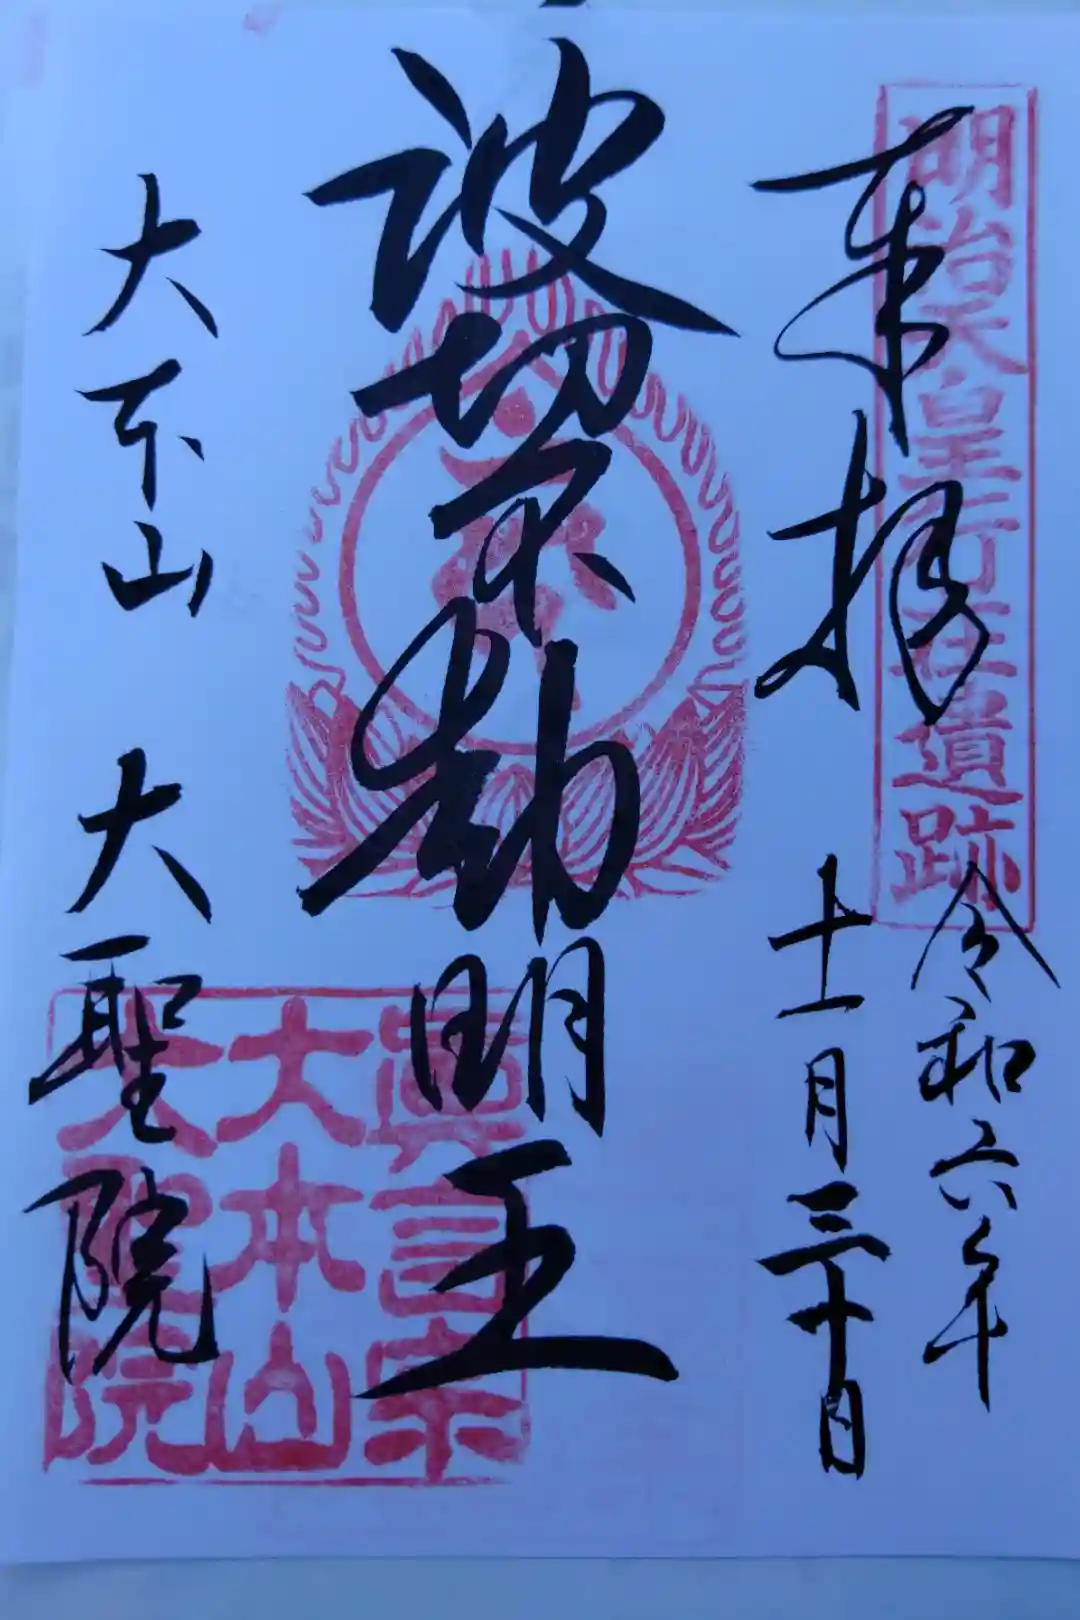 明治天皇行在遺跡
奉拝
令和六年
十一月三十日
波切不動明王
大本山 大聖院
眞言宗
大本山
大聖院